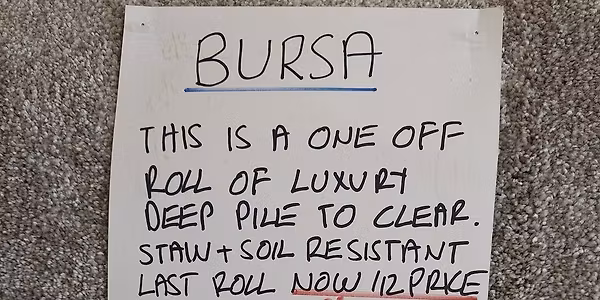 BURSA
THIS IS A ONE OFF
ROLL OF LUXURY
DEEP PILE TO CLEAR.
STAW + SOIL RESISTANT
LAST ROLL NOW 1/2 PRICE